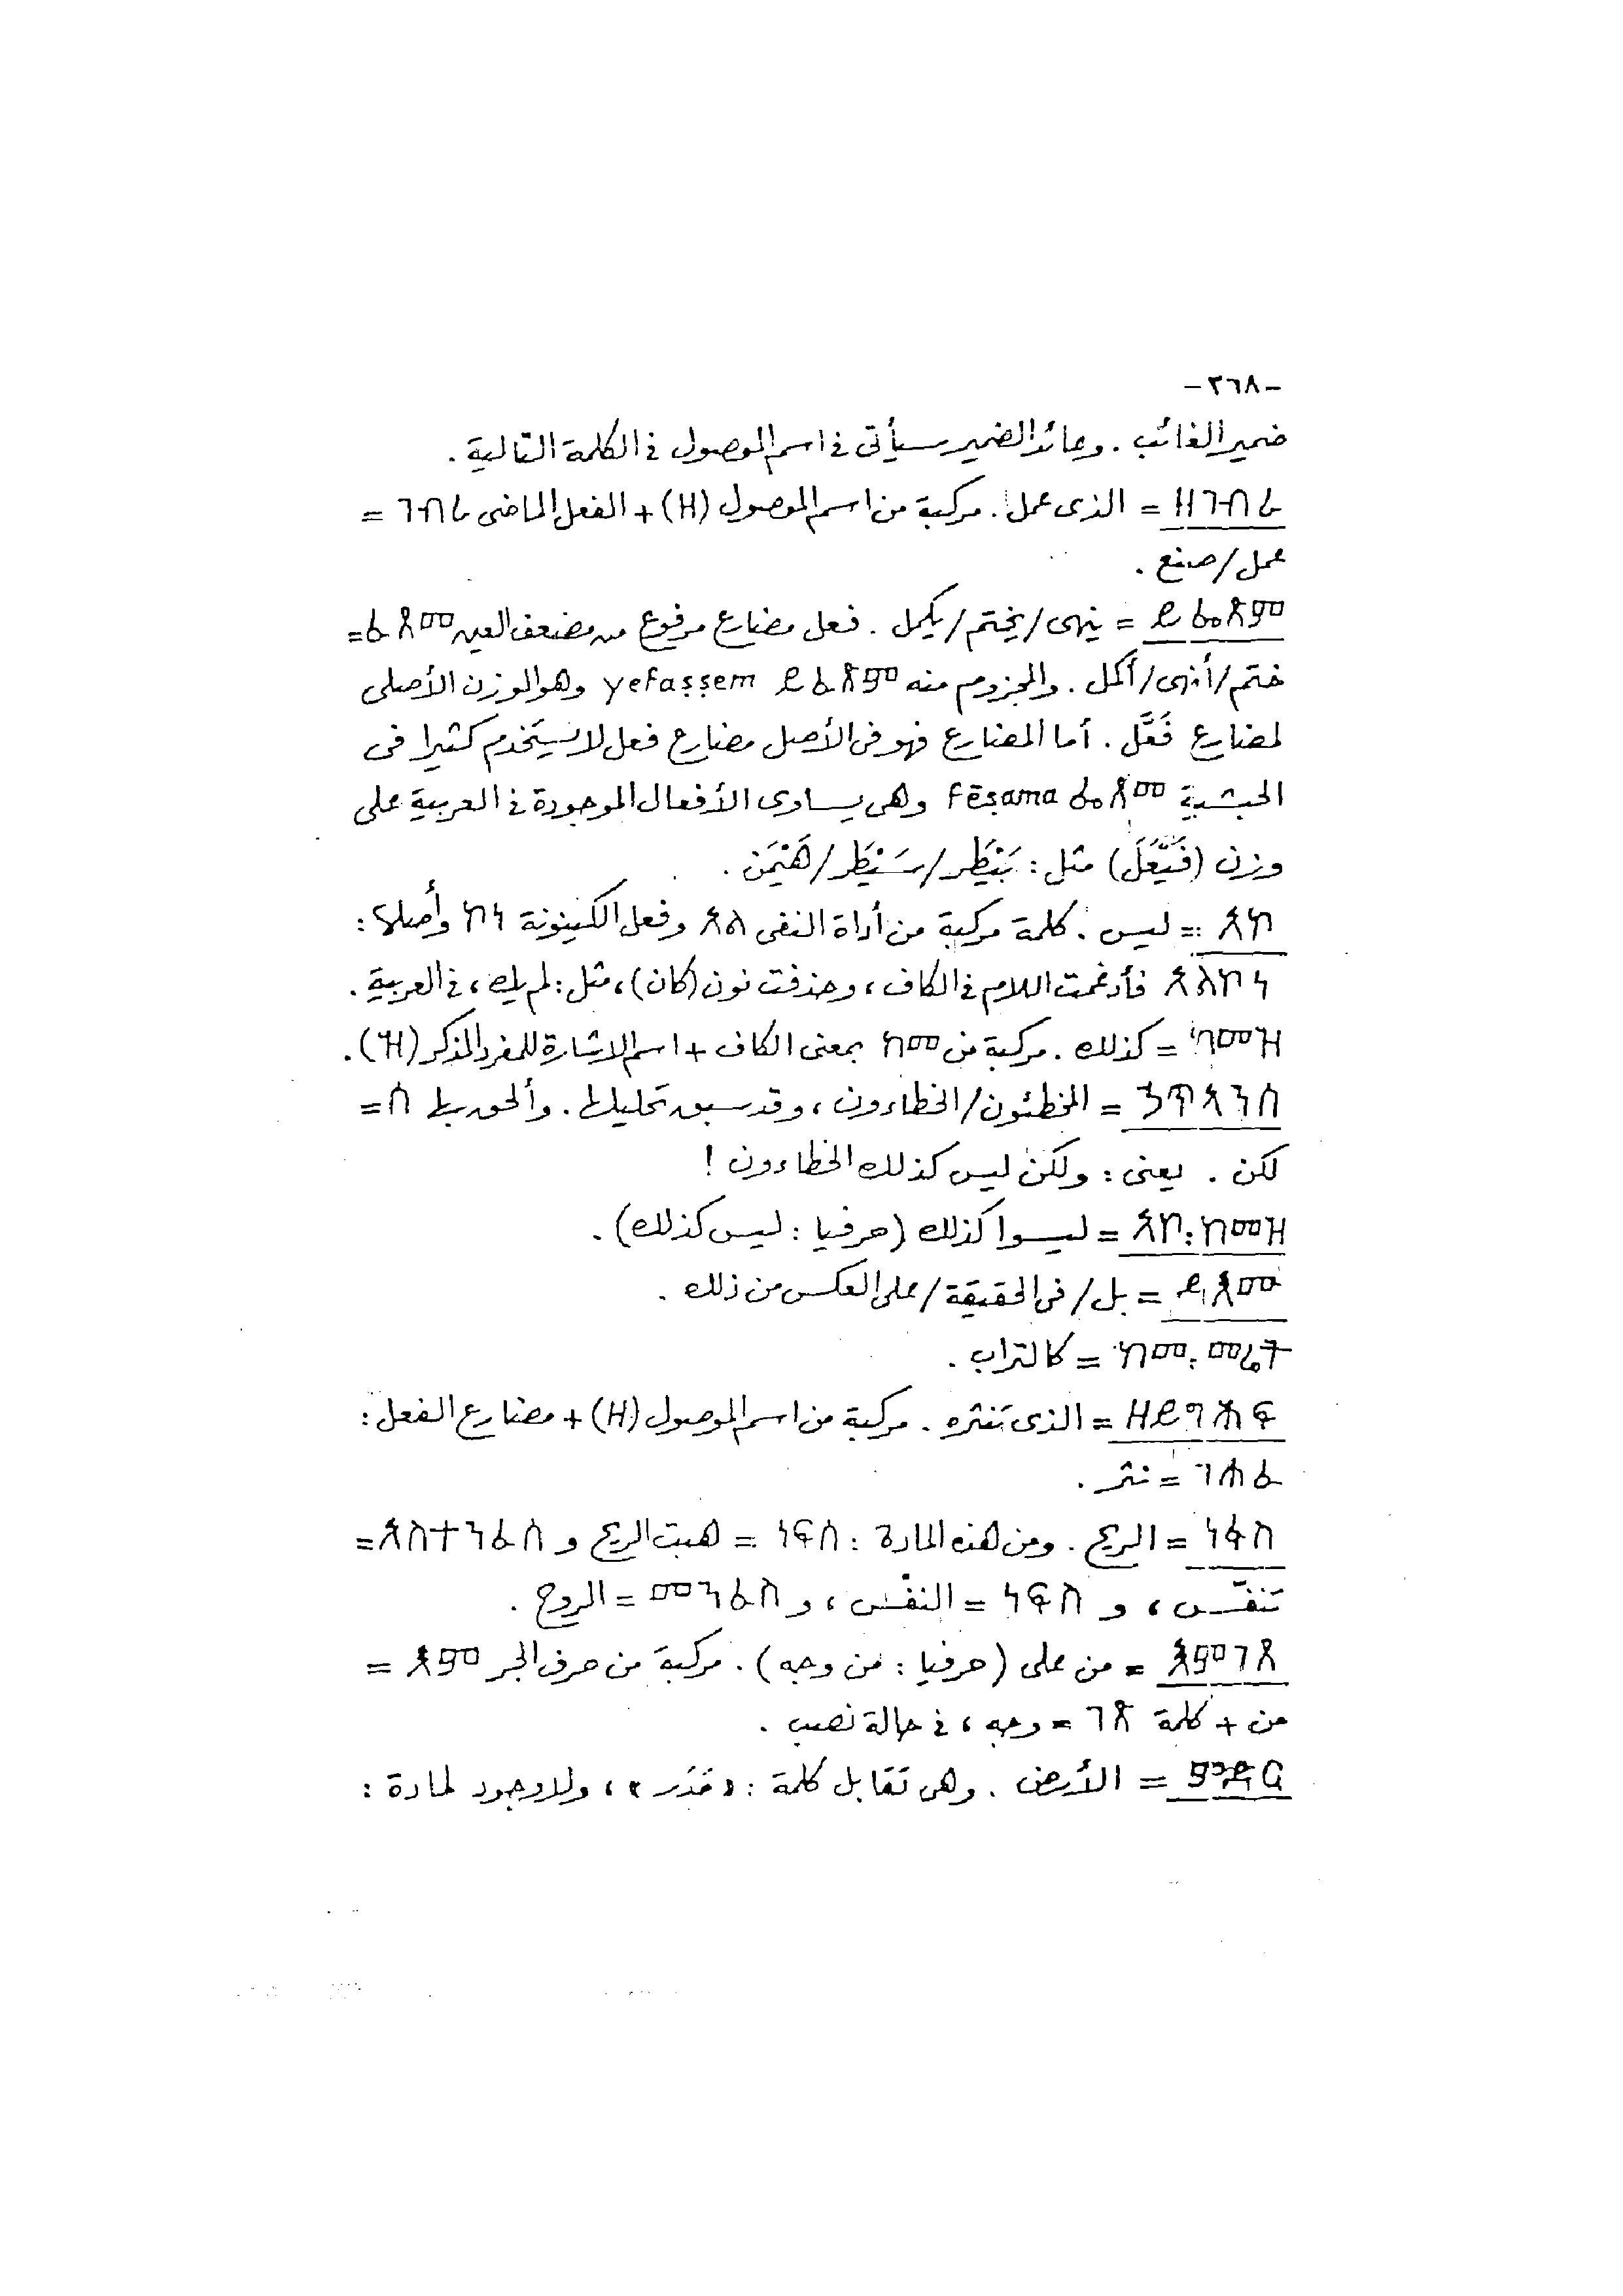 -٣٦٨-
ضمير الغائب . وعائد الضمير سيأتى فى اسم الموصول فى الكلمة التالية .
ዘገብረ = الذى عمل . مركبة من اسم الموصول (ዘ) + الفعل الماضى ገብረ =
عمل/صنع .
ይፌጽም = ينهى/يختم/يكمل . فعل مضارع مرفوع من مضعف العين ፈጸመ =
ختم/أنهى/أكمل . والمجزوم منه ይፈጽም yefaṣṣem وهو الوزن الأصلى
لمضارع فَعَّل . أما المضارع فهو فى الأصل مضارع فعل لا يستخدم كثيرا فى
الحبشية ፌጸመ fēṣama وهى يساوى الأفعال الموجودة فى العربية على
وزن (فَيْعَلَ) مثل : بَيْطَر/سَيْطَر/هَيْمَن .
አኮ = ليس . كلمة مركبة من أداة النفى አል وفعل الكينونة ኮነ وأصلها :
አልኮነ فأدغمت اللام فى الكاف ، وحذفت نون (كان) ، مثل : لم يك ، فى العربية .
ከመዝ = كذلك . مركبة من ከመ بمعنى الكاف + اسم الاشارة للمفرد المذكر (ዝ) .
ኃጥአንሰ = المخطئون/الخطاءون ، وقد سبق تحليلها . وألحق بها ሰ =
لكن . يعنى : ولكن ليس كذلك الخطاءون !
አኮ፡ከመዝ = ليسوا كذلك (حرفيا : ليس كذلك) .
= بل/فى الحقيقة/على العكس من ذلك .
ከመ፡መሬት = كالتراب .
ዘይግሕፍ = الذى تنثره . مركبة من اسم الموصول (ዘ) + مضارع الفعل :
ገሐፈ = نثر .
ነፋስ = الريح . ومن هذه المادة : ነፍሰ = هبت الريح و አስተንፈሰ =
تنفّس ، و ነፍስ = النفْس ، و መንፈስ = الروح .
እምገጸ = من على (حرفيا : من وجه) . مركبة من حرف الجر እም =
من + كلمة ገጸ = وجه ، فى حالة نصب .
ምድር = الأرض . وهى تقابل كلمة : « مَدَر » ، ولا وجود لمادة :